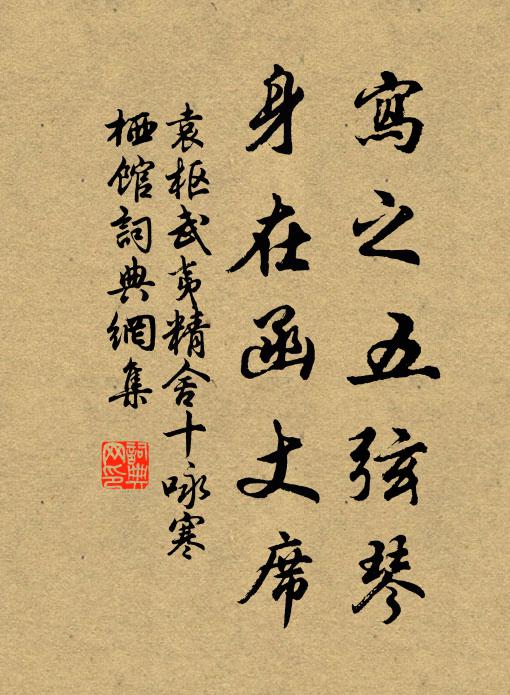 寫之五弦琴
身在函丈席
袁枢武夷精舍十咏寒
栖馆詞典網集
詞典
网印